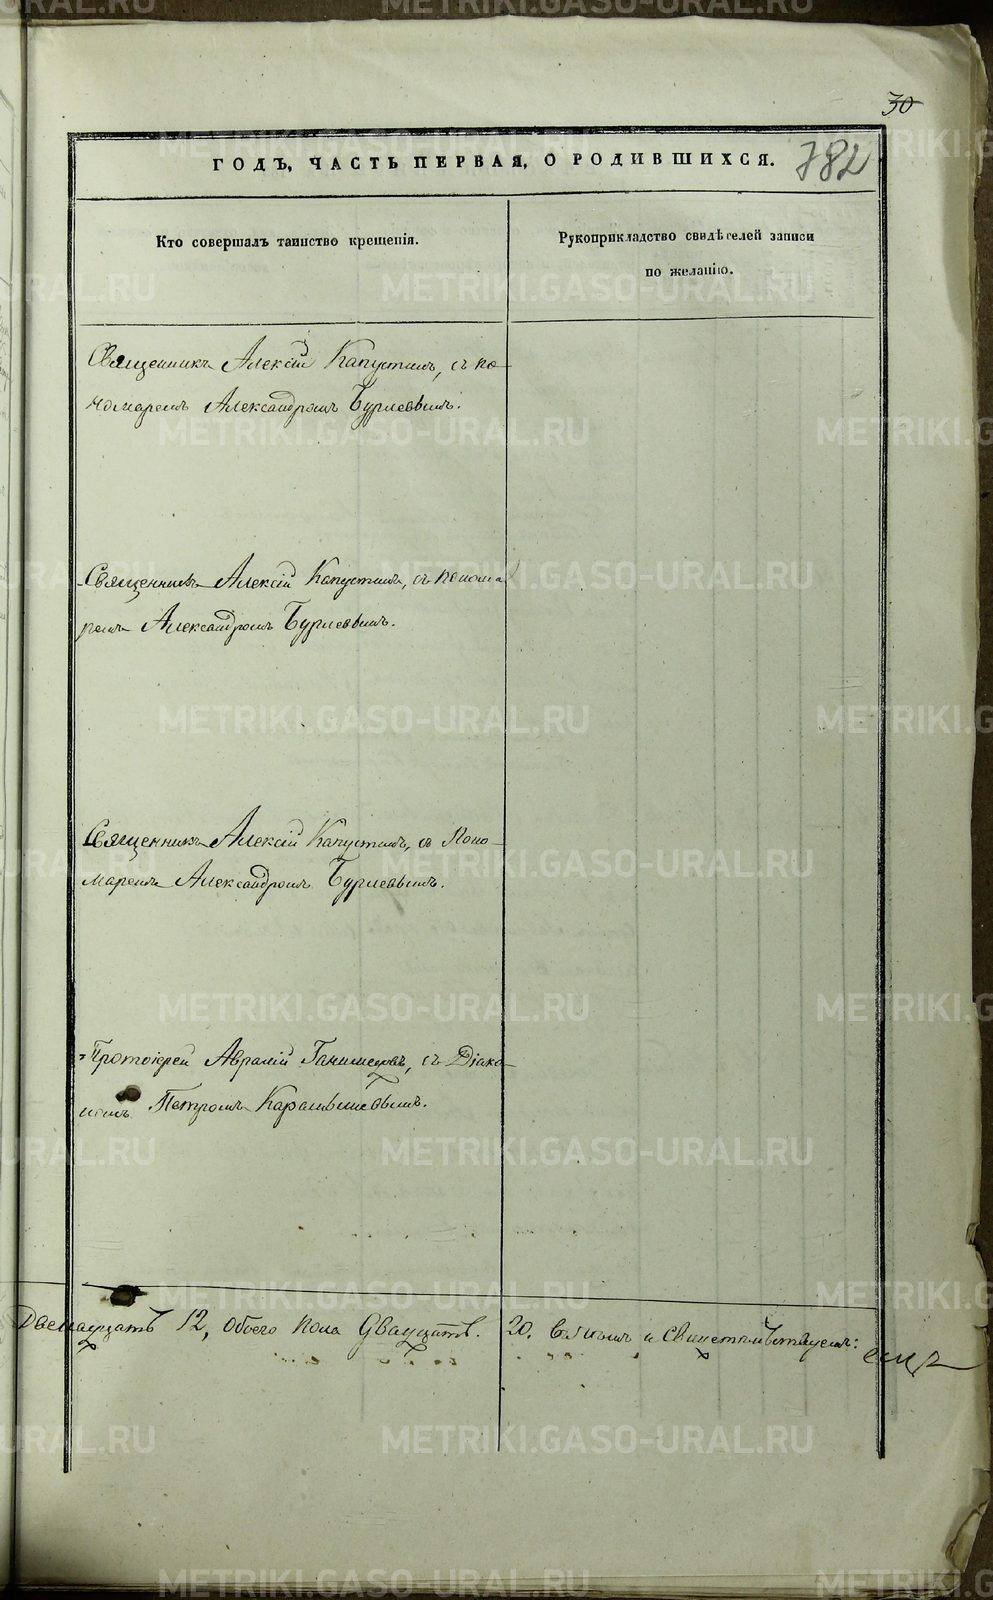 30
782
ГОДЪ, ЧАСТЬ ПЕРВАЯ, О РОДИВШИХСЯ.
Кто совершалъ таинство крещенія.
Рукоприкладство свидѣтелей записи
по желанію.
Священникъ Алексій Капустинъ, съ по-
номаремъ Александромъ
Священникъ Алексій Капустинъ, съ понома
ремъ Александромъ
Священникъ Алексій Капустинъ, съ Поно-
маремъ Александромъ
Протоіерей Аврамій съ Діако-
номъ Петромъ
Двенадцать 12, обоего пола Двадцать. 20. въ чемъ и свидетельствуемъ:
METRIKI.GASO-URAL.RU